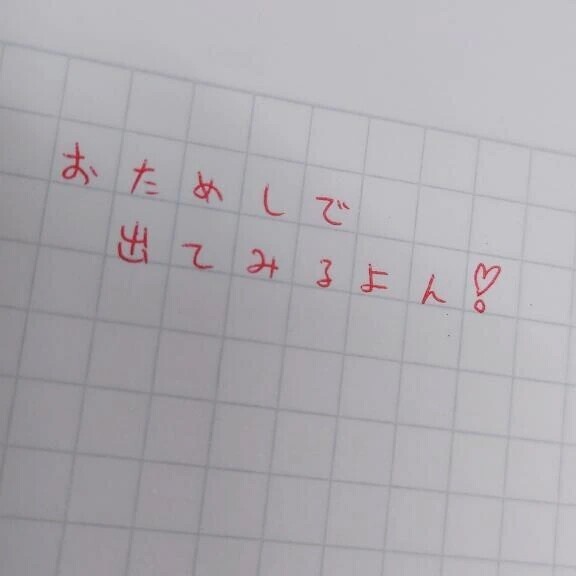 おためしで
出てみるよん♡